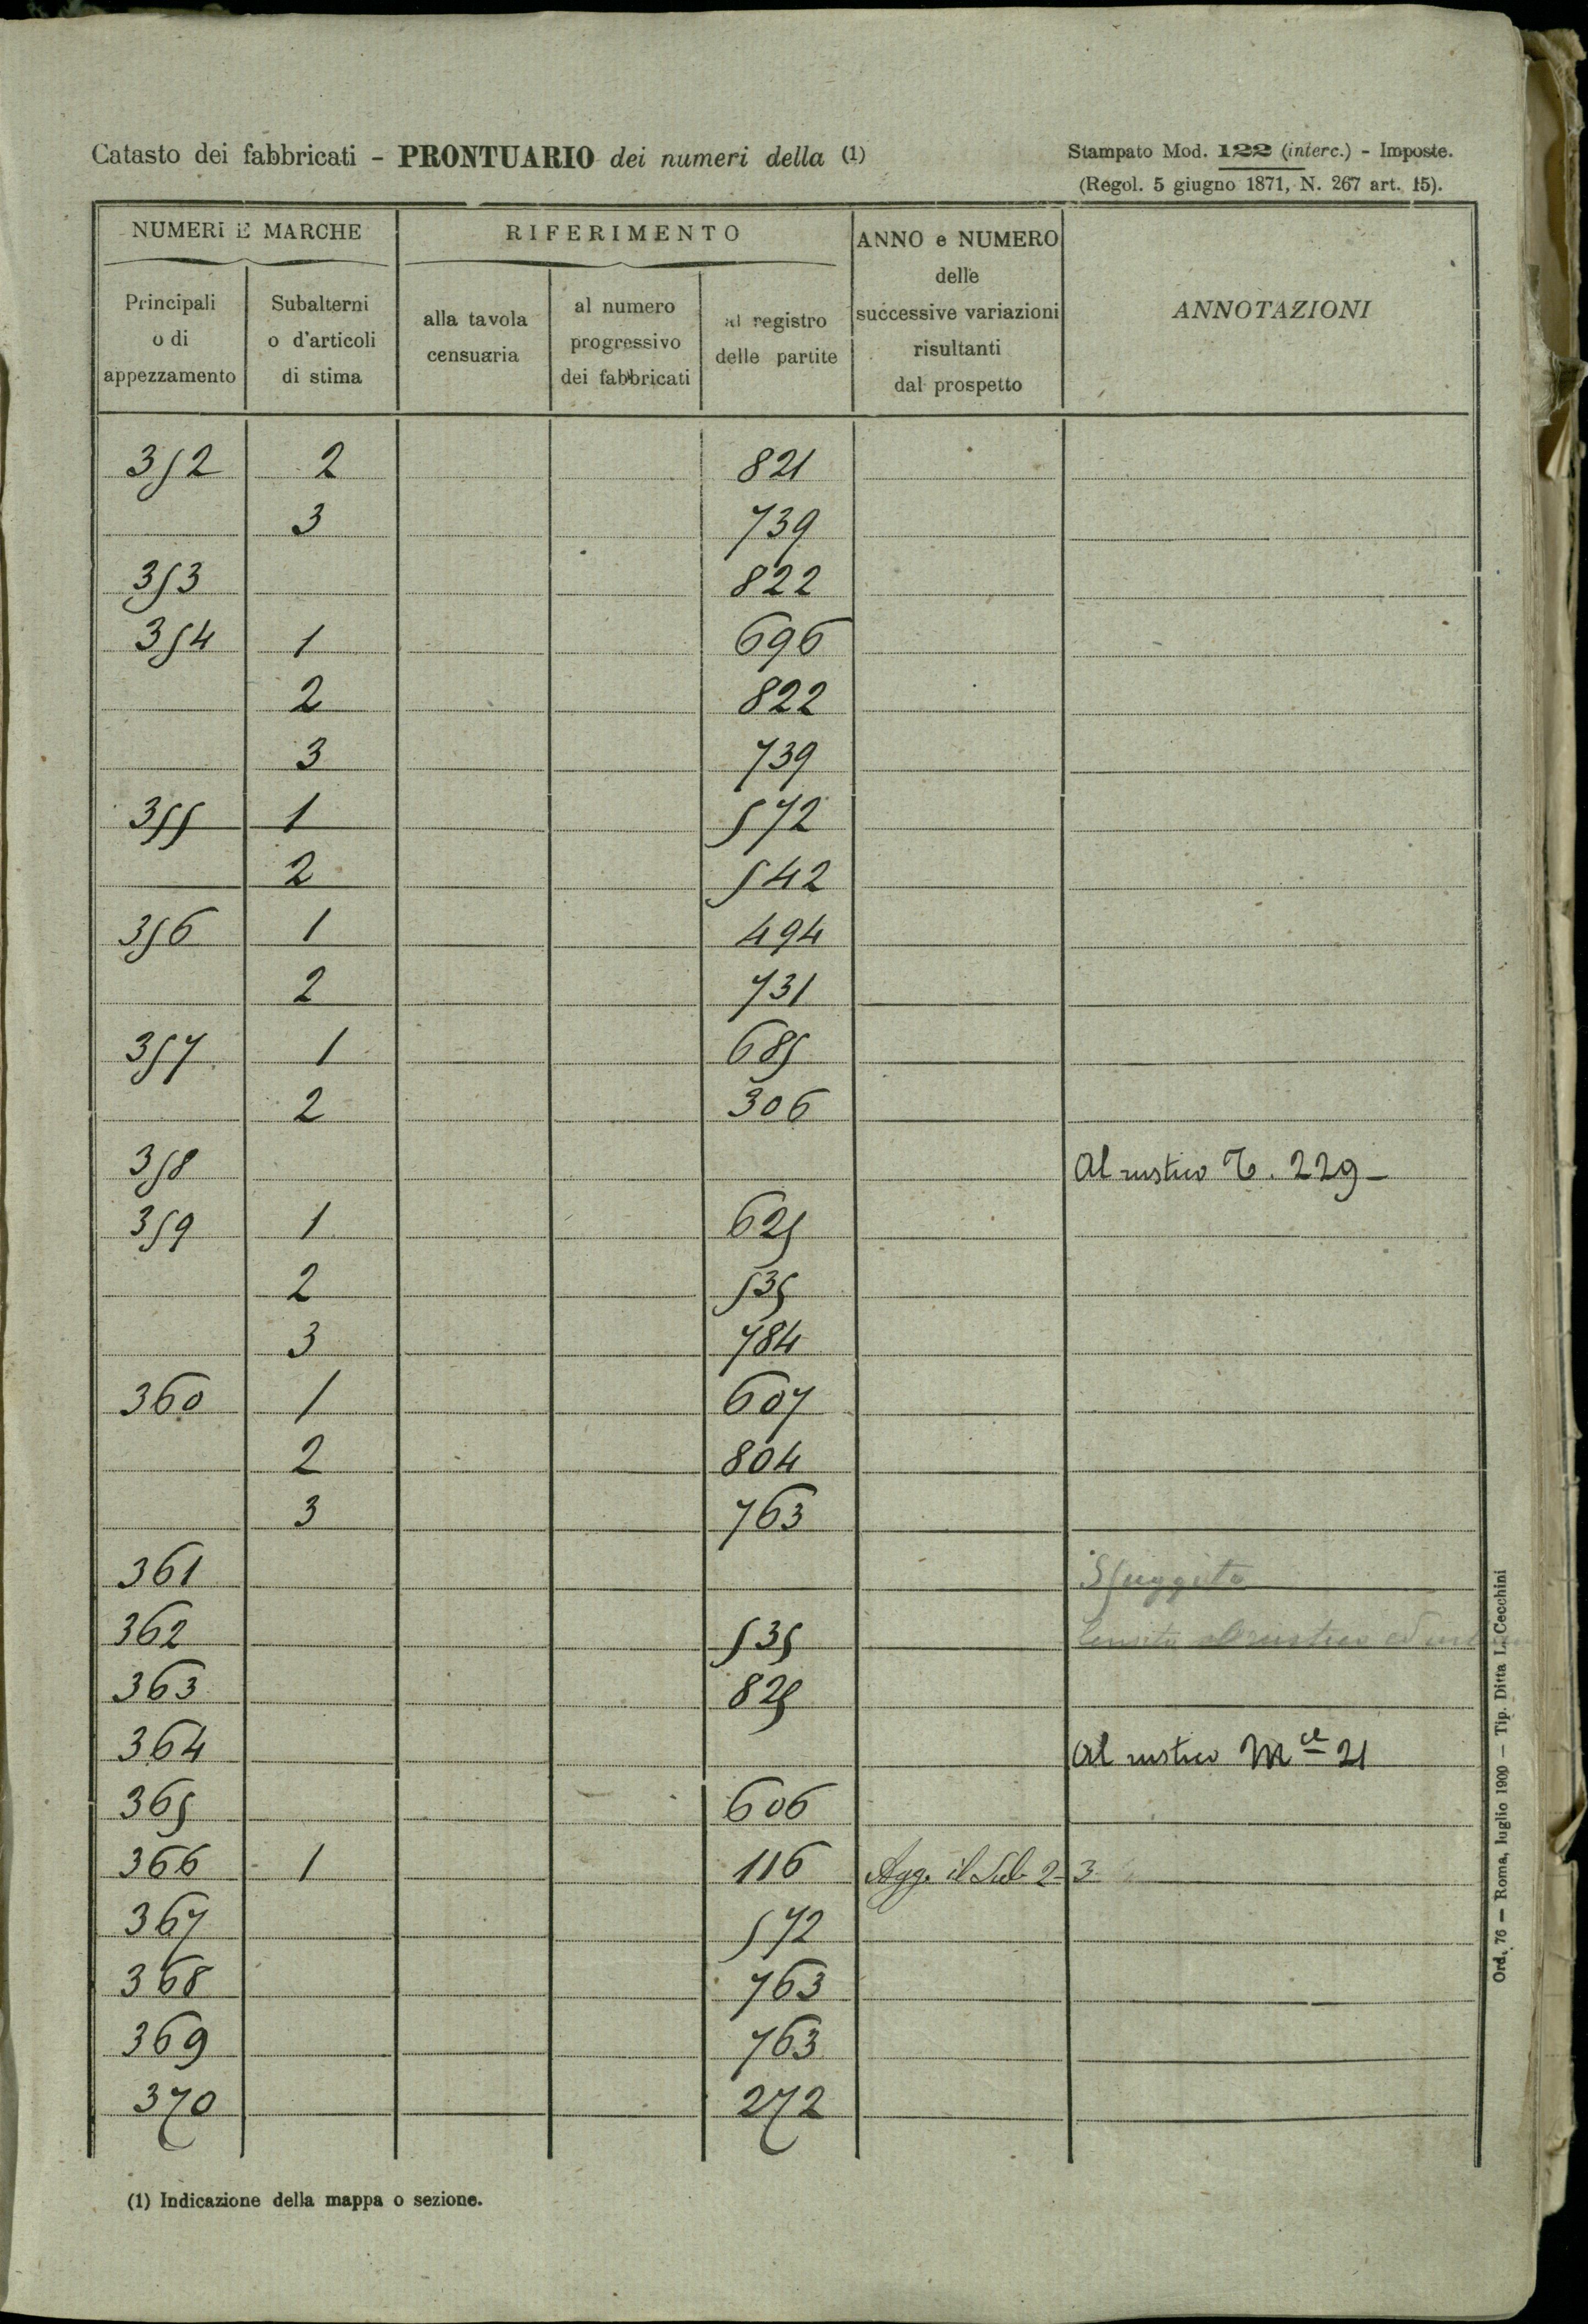 Catasto dei fabbricati - PRONTUARIO dei numeri della (1)
Stampato Mod. 122 (interc.) - Imposte.
(Regol. 5 giugno 1871, N. 267 art. 15).
NUMERI E MARCHE
RIFERIMENTO
ANNO e NUMERO
delle
successive variazioni
risultanti
dal prospetto
ANNOTAZIONI
Principali
o di
appezzamento
Subalterni
o d'articoli
di stima
alla tavola
censuaria
al numero
progressivo
dei fabbricati
al registro
delle partite
352 2 821
3 739
353 822
354 1 696
2 822
3 739
355 1 572
2 542
356 1 494
2 731
357 1 685
2 306
358 Al rustico T. 229 -
359 1 625
2 535
3 784
360 1 607
2 804
3 763
361 Sfuggito
362 535 Censito al rustico ed
363 825
364 al rustico M cl 21
365 606
366 1 116 Agg. il Sub 2-3
367 572
368 763
369 763
370 272
(1) Indicazione della mappa o sezione.
Ord. 76 — Roma, luglio 1900 — Tip. Ditta L. Cecchini